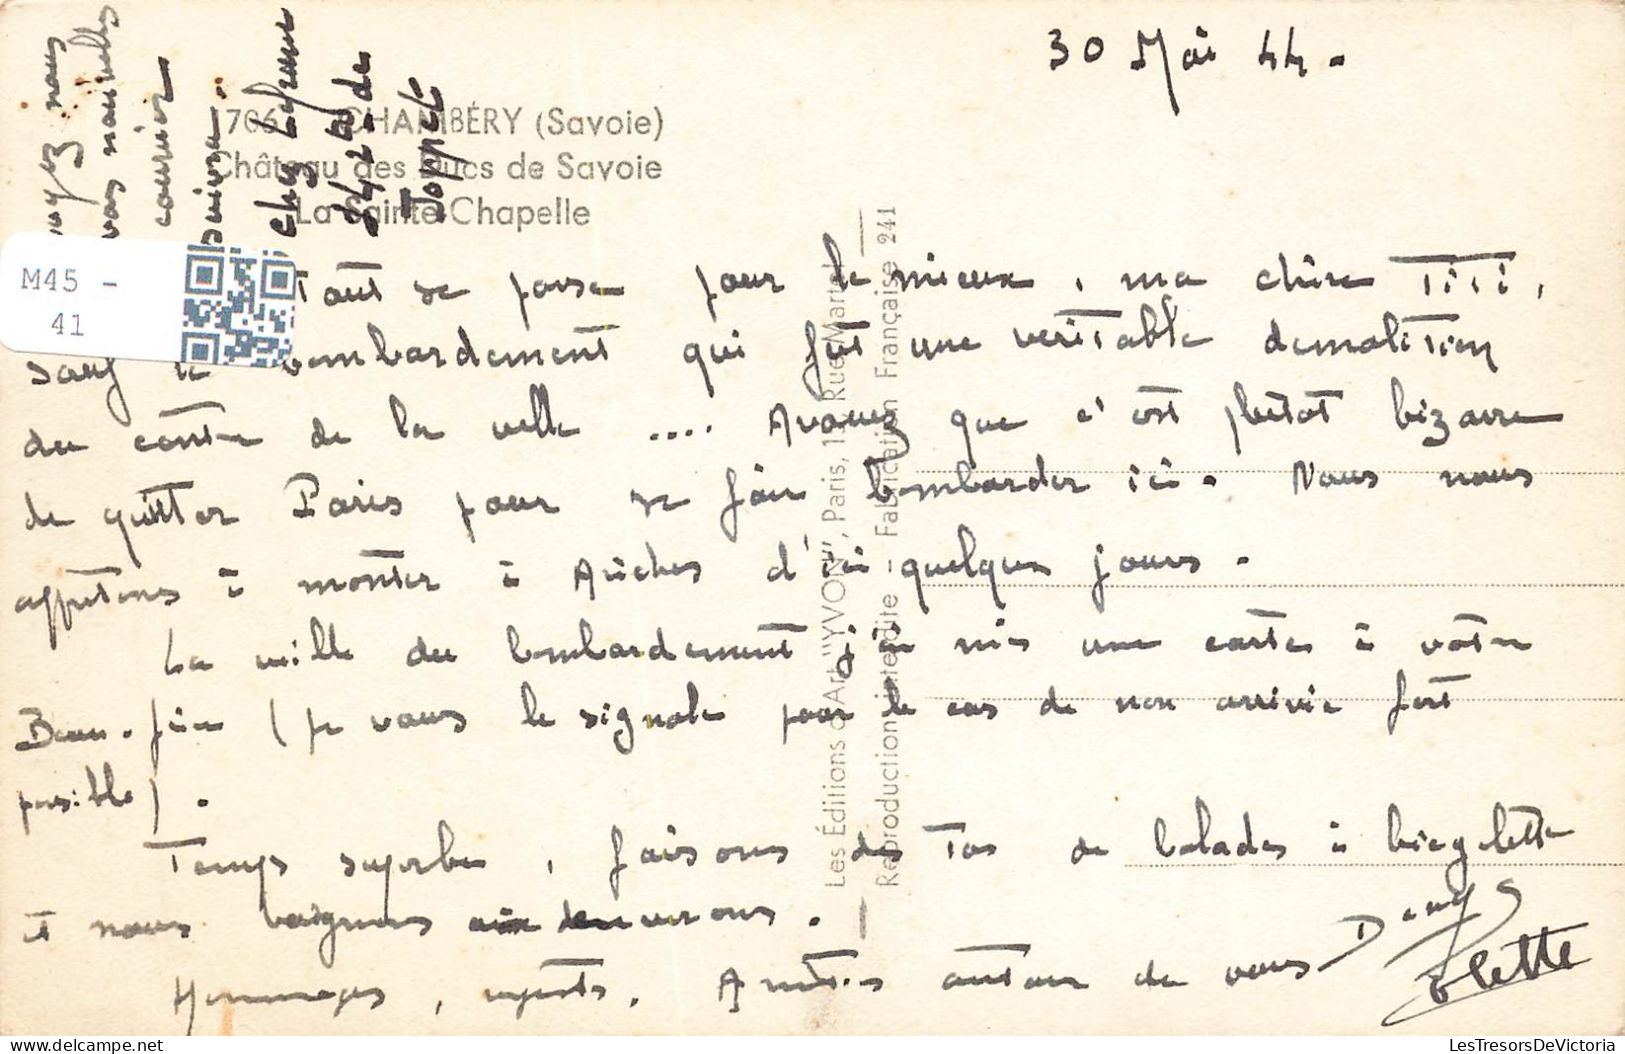 30 Mai 44.
CHAMBÉRY (Savoie)
Château des Ducs de Savoie
La Sainte Chapelle
nous
vos nouvelles
courrier
suivra.
chez
de
M45 -
41
Tout se passe pour le mieux, ma chère Titi,
sauf le bombardement qui fut une veritable demolition
du centre de la ville .... Avouez que c'est plutot bizarre
de quitter Paris pour se faire bombarder ici. Nous nous
appretons à monter à Arèches d'ici quelques jours.
La veille du bombardement j'ai mis une carte à votre
Beau-frère (je vous le signale pour le cas de non arrivée fort
possible).
Temps superbe, faisons des tas de balades à bicyclette
et nous baignons aux environs.
Hommages, respects, Amitiés autour de vous Denys
Colette
Les Éditions d'Art "YVON", Paris, Rue Martel
Reproduction interdite - Fabrication Française 241
delcampe.net
LesTresorsDeVictoria